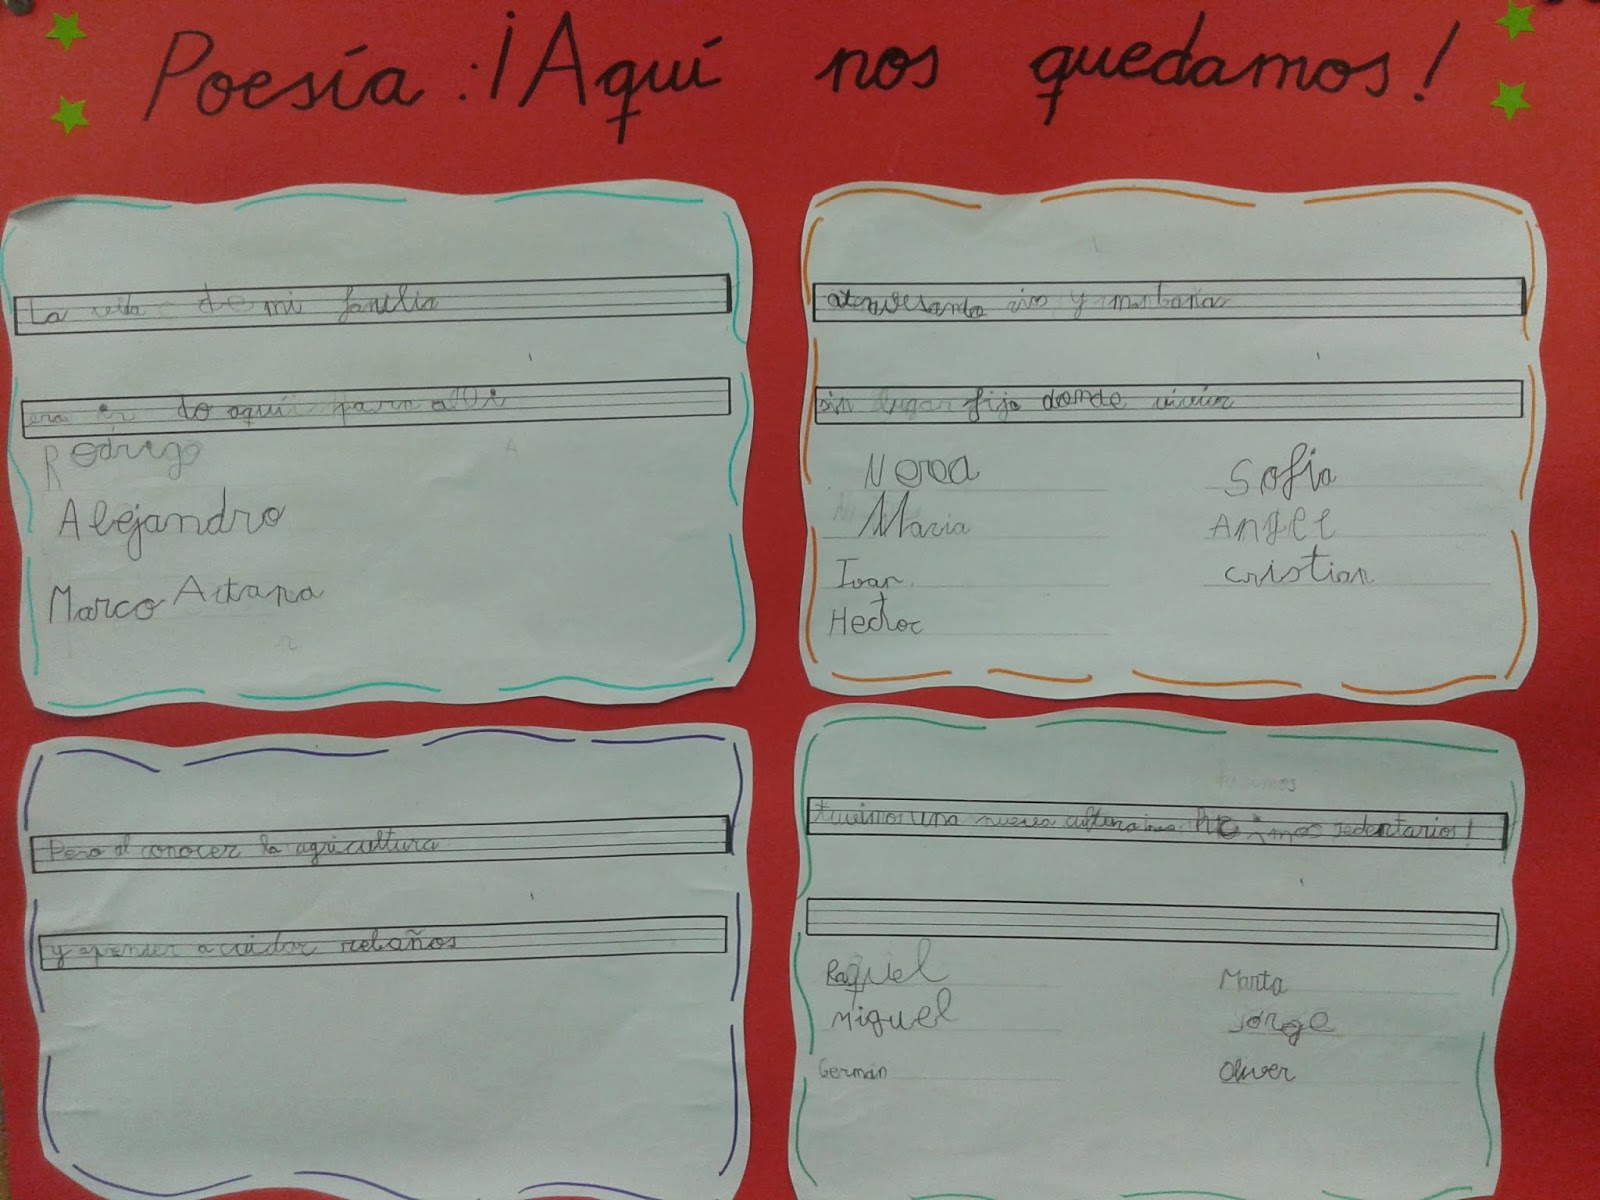 Poesía: ¡Aquí nos quedamos!
La vida de mi familia
era ir de aquí para allí
Rodrigo
Alejandro
Marco Aitana
atravesando rios y montañas
sin lugar fijo donde vivir
Noroa Sofia
Maria Angel
Ivan cristian
Hector
Pero al conocer la agricultura
y aprender a cuidar rebaños
hicimos
tuvimos una nueva cultura sedentarios!
Raquel Marta
Miguel Jorge
Germán Oliver